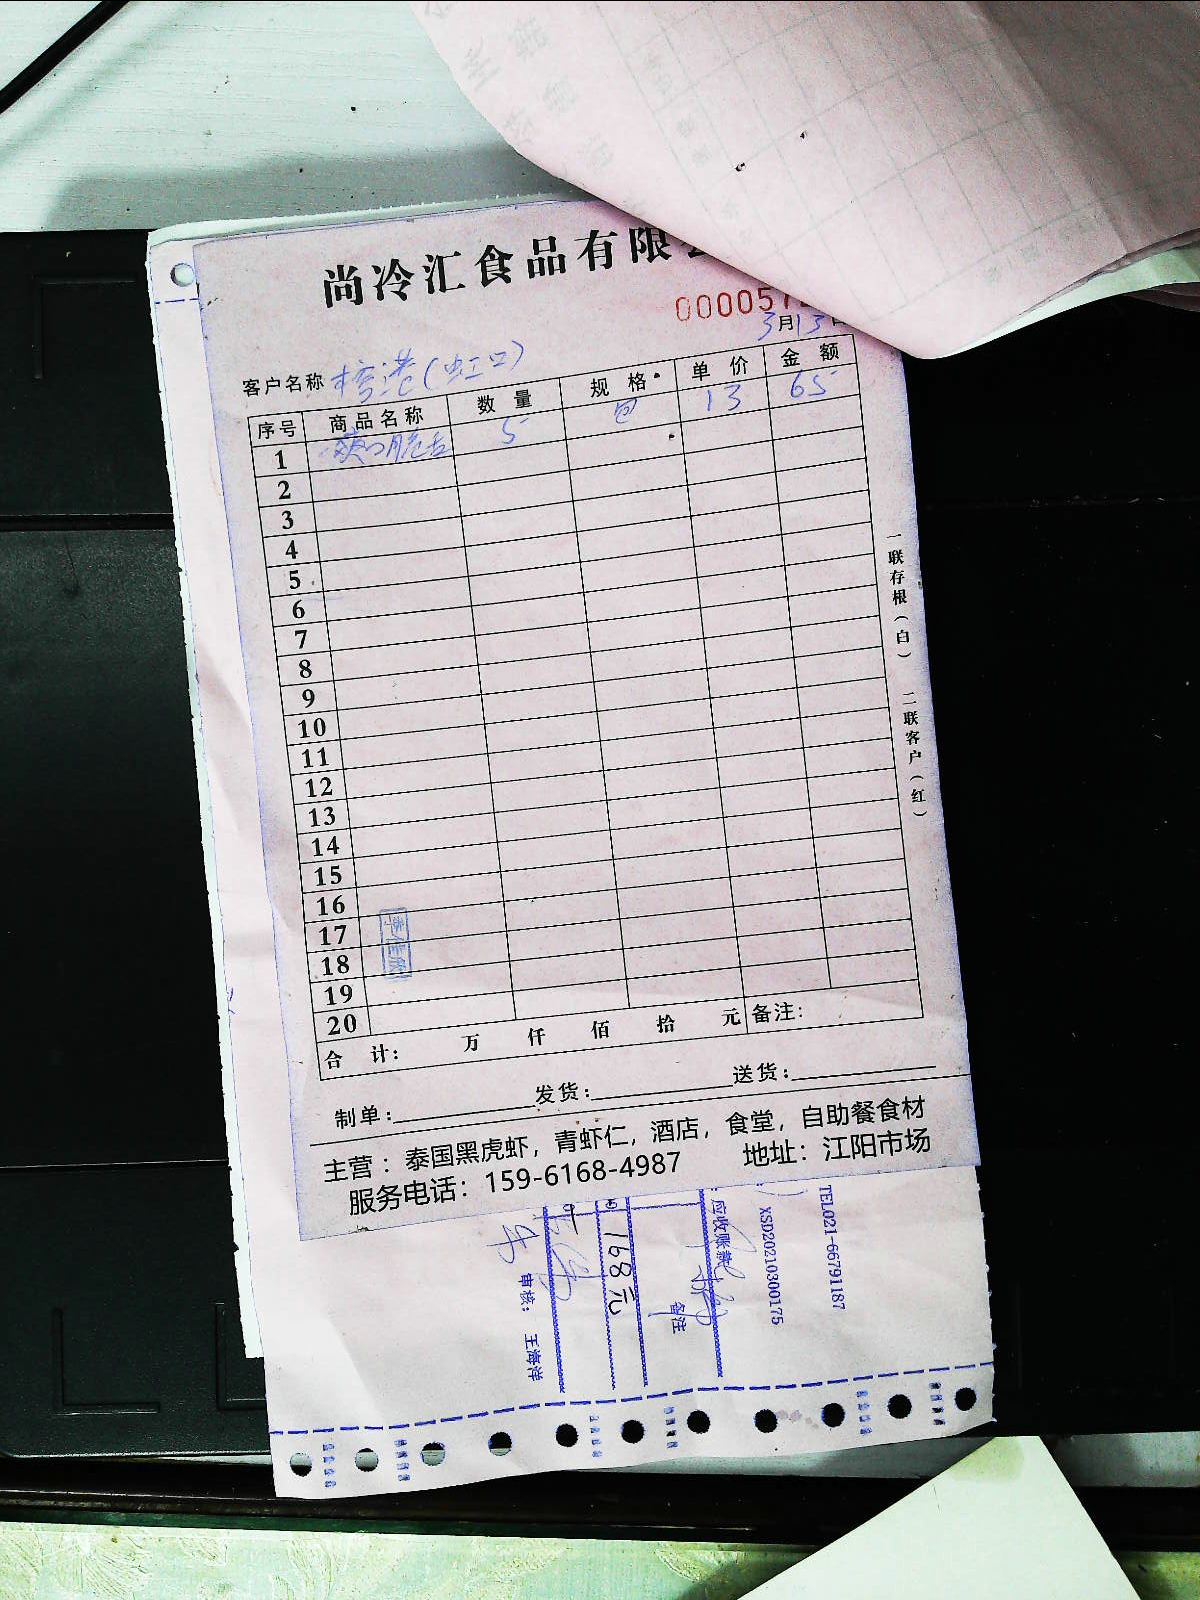 尚冷汇食品有限
000057
3月13日
客户名称 檀港(虹口)
序号 商品名称 数量 规格 单价 金额
1 爽口脆舌 5 包 13 65
2
3
4
5
6
7
8
9
10
11
12
13
14
15
16
17
18
19
20
李佳欣
合计: 万 仟 佰 拾 元 备注:
制单: 发货: 送货:
主营：泰国黑虎虾，青虾仁，酒店，食堂，自助餐食材
服务电话：159-6168-4987 地址：江阳市场
一联存根(白) 二联客户(红)
TEL021-66791187
XSD20210300175
应收账款
备注
168元
审核: 王海洋